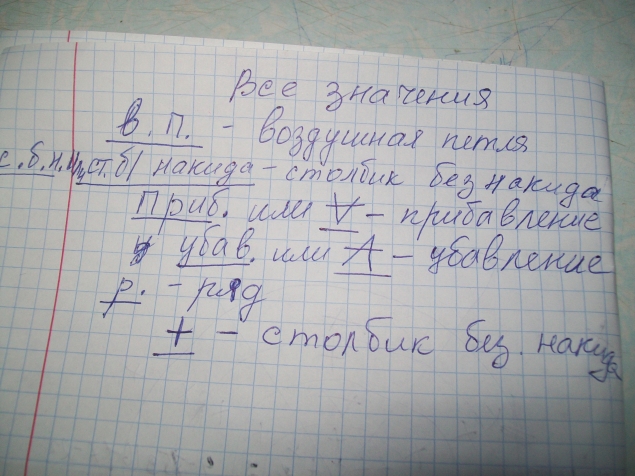 Все значения
в.п. - воздушная петля
с.б.н. или ст.б/накида - столбик без накида
Приб. или V - прибавление
убав. или А - убавление
р. - ряд
+ - столбик без. накида